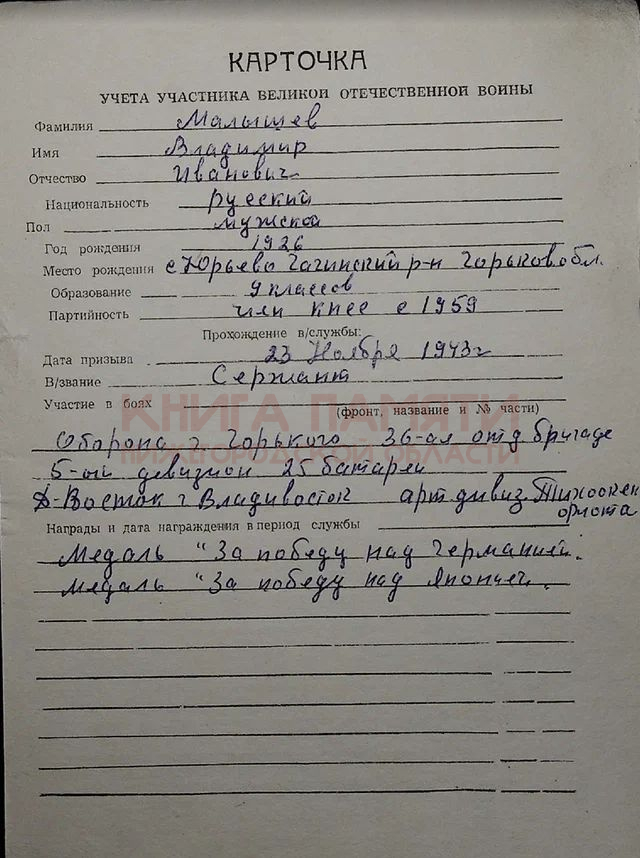 КАРТОЧКА
УЧЕТА УЧАСТНИКА ВЕЛИКОЙ ОТЕЧЕСТВЕННОЙ ВОЙНЫ
Фамилия Малышев
Имя Владимир
Отчество Иванович
Национальность русский
Пол мужской
Год рождения 1926
Место рождения с Юрьево Гагинский р-н Горьков обл.
Образование 9 классов
Партийность член КПСС с 1959
Прохождение в/службы:
Дата призыва 23 Ноября 1943 г
В/звание Сержант
Участие в боях
(фронт, название и № части)
КНИГА ПАМЯТИ
НИЖЕГОРОДСКОЙ ОБЛАСТИ
Оборона г Горького 36-ая отд бригаде
5-ый девизион 25 батареи
Д-Восток г Владивосток арт дивиз Тихоокен
флота
Награды и дата награждения в период службы
Медаль "За победу над Германией.
Медаль "За победу над Японией.